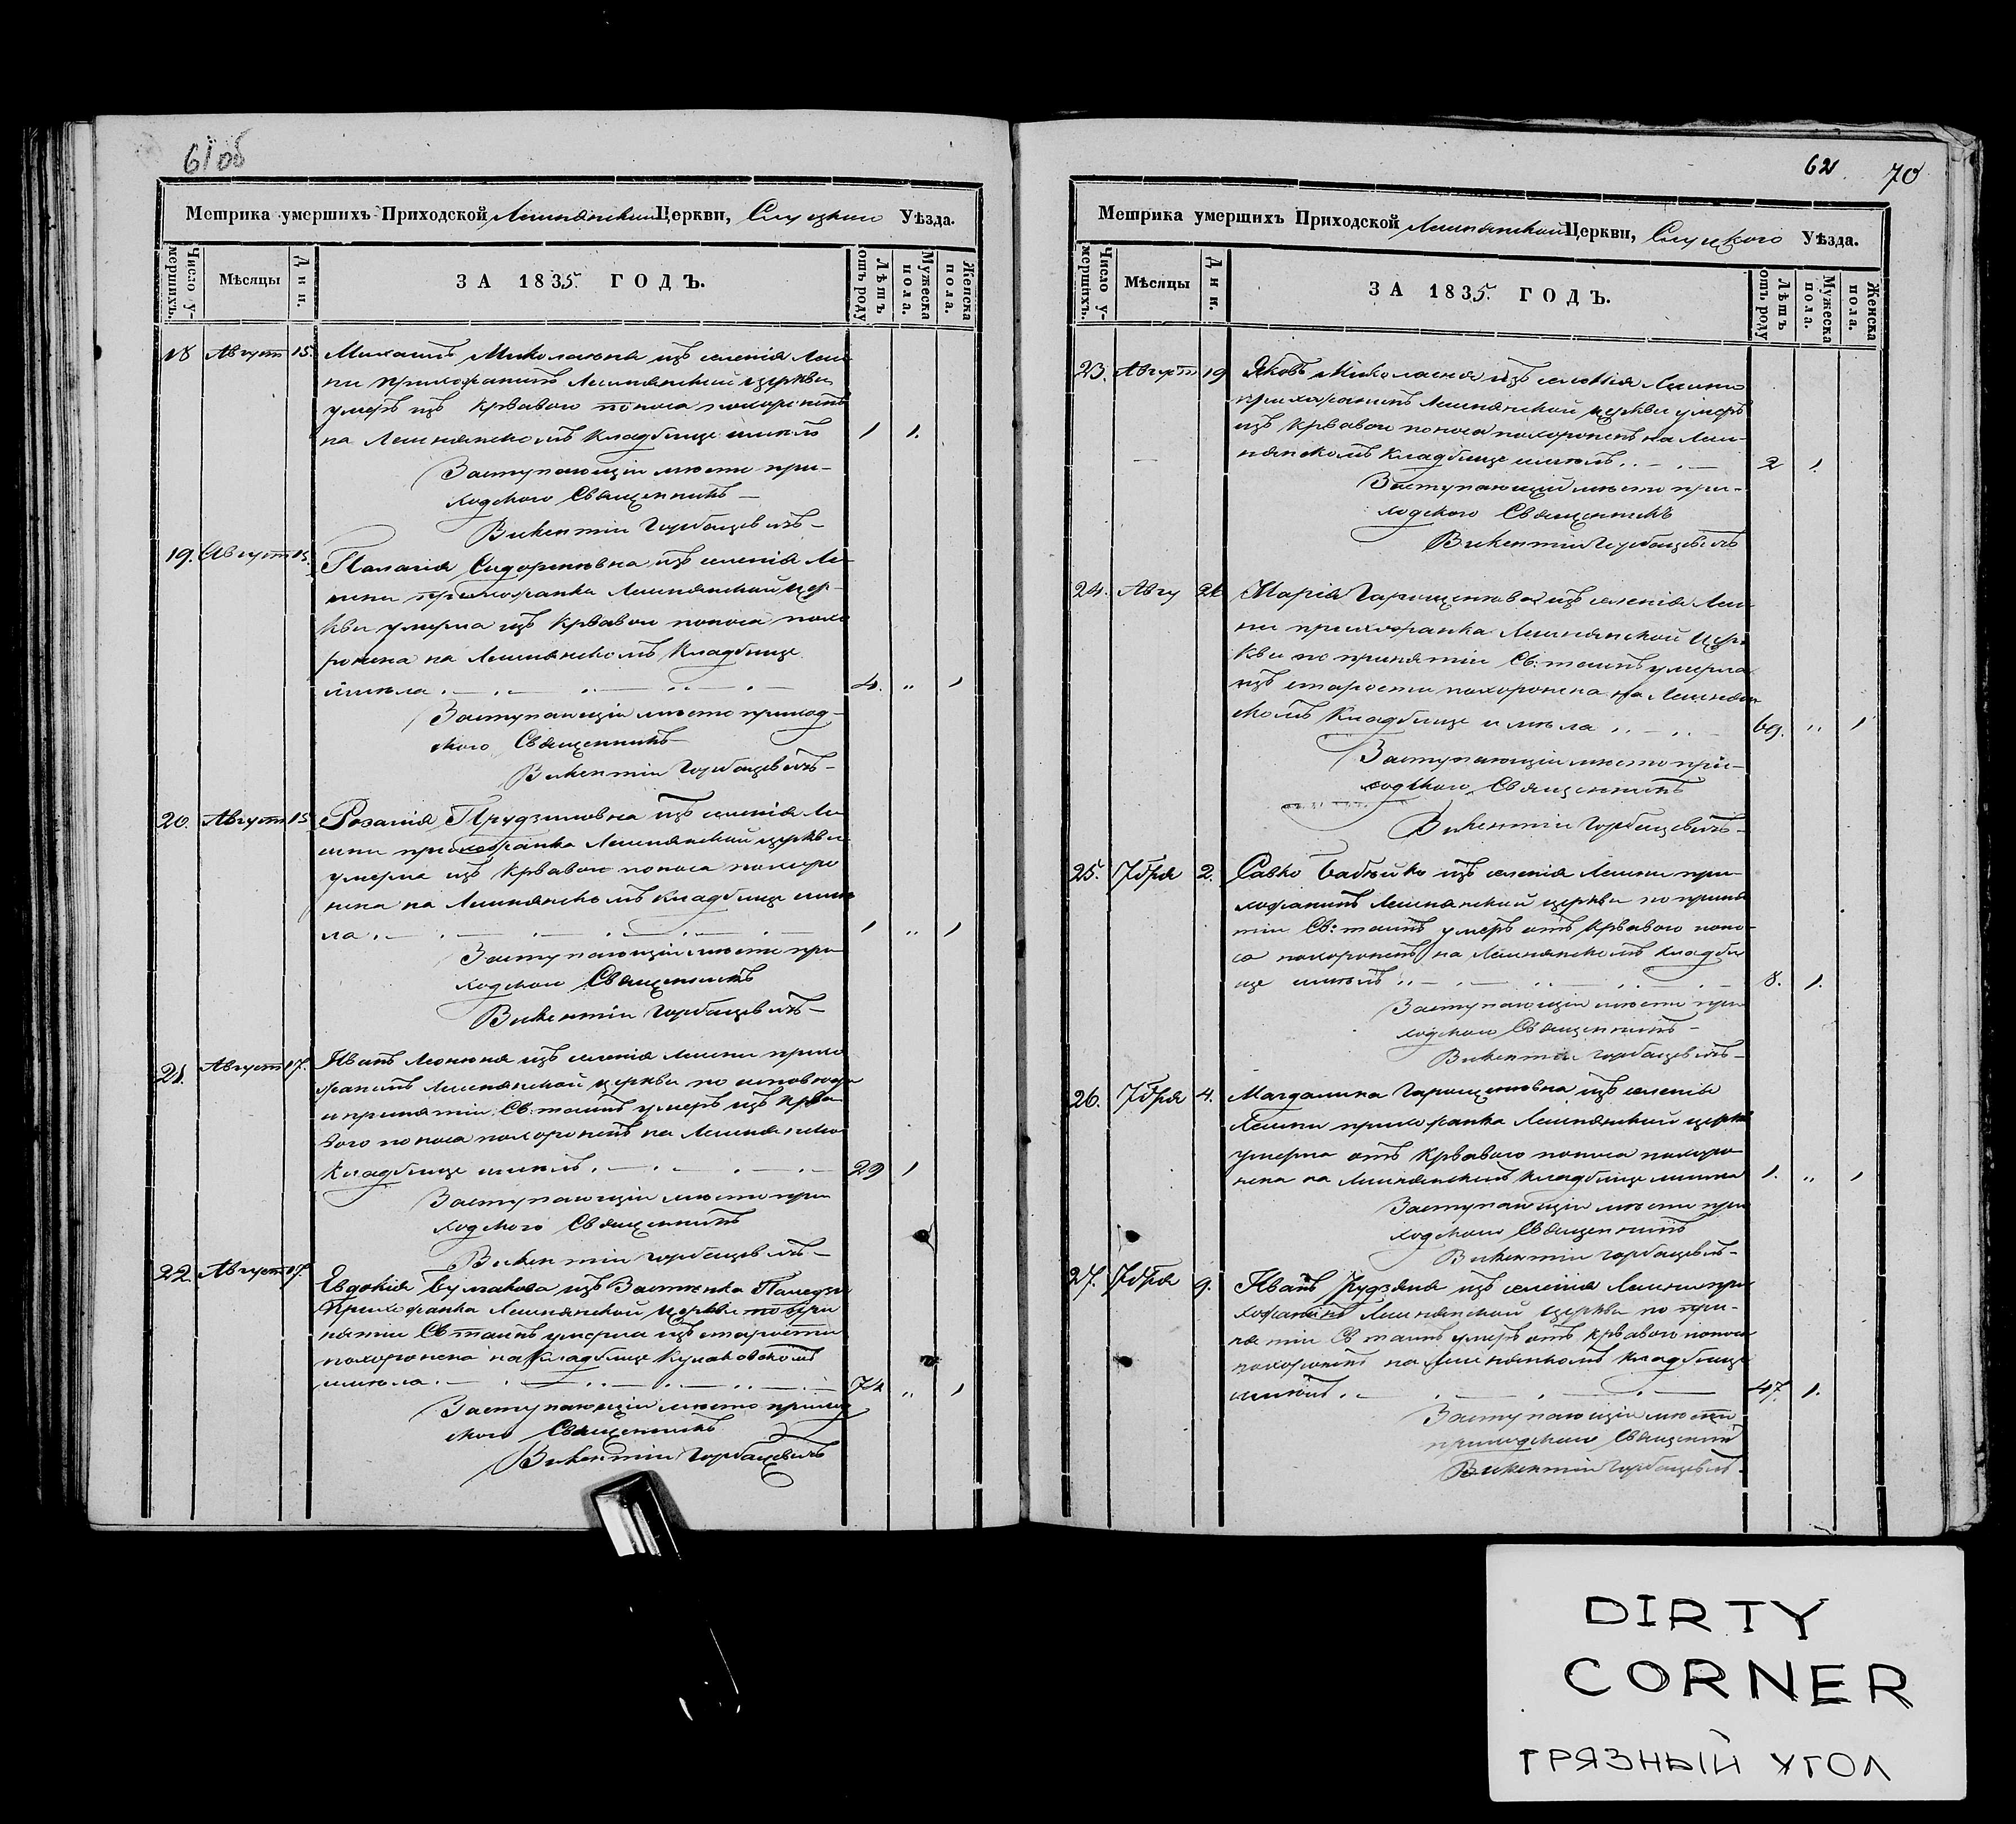 61об
Метрика умершихъ Приходской Лешнянской Церкви, Слуцкаго Уѣзда.
Число у-
мершихъ.
Мѣсяцы
Дни.
ЗА 1835. ГОДЪ.
Лѣтъ
отъ роду
Мужеска
пола.
Женска
пола.
18 Август 15. Михаилъ из селенія Леш
ни прихожанинъ Лешнянской церкви
умеръ изъ крвавого поноса похороненъ
на Лешнянскомъ кладбище имелъ 1 1.
Заступающій место при-
ходского Священникъ
Викентій Горбацевичъ
19. Август 15. Палагія Сидоренковна изъ селенія Ле
шни прихожанка Лешнянской цер-
кви умерла изъ крвавого поноса похо
ронена на Лешнянскомъ Кладбище
имела 4. " 1
Заступающій место приход-
ского Священникъ
Викентій Горбацевичъ
20. Август 15 Розалія изъ селенія Ле
шни прихожанка Лешнянской церкви
умерла изъ крвавого поноса похоро
нена на Лешнянскомъ кладбище име
ла 1 " 1
Заступающій место при
ходского Священникъ
Викентій Горбацевичъ
21. Август 17. Иванъ изъ селенія Лешни прихо
жанинъ Лешнянской церкви по исповеди
и принятіи Св: таинъ умеръ изъ крва
вого поноса похороненъ на Лешнянско
кладбище имелъ 29 1
Заступающій место при
ходского Священникъ
Викентій Горбацевичъ
22. Август 17. Евдокія изъ Застенка
прихожанка Лешнянской церкви по при
нятіи Св таинъ умерла изъ старости
похоронена на кладбище Кулаковскомъ
имела 74 " 1
Заступающій место приход
ского Священникъ
Викентій Горбацевичъ
62 70
Метрика умершихъ Приходской Лешнянской Церкви, Слуцкого Уѣзда.
Число у-
мершихъ.
Мѣсяцы
Дни.
ЗА 1835. ГОДЪ.
Лѣтъ
отъ роду
Мужеска
пола.
Женска
пола.
23. Август 19 Яковъ изъ селенія Лешни
прихожанинъ Лешнянской церкви умеръ
изъ крвавого поноса похороненъ на Леш-
нянскомъ кладбище имелъ 2 1.
Заступающий место при-
ходского Священникъ
Викентій Горбацевичъ
24. Авгу Марія изъ селенія Леш
ни прихожанка Лешнянской Цер-
кви по принятіи Св: таинъ умерла
изъ старости похоронена на Лешнян
скомъ Кладбище имела 69. " 1
Заступающій место при-
ходского Священникъ
Викентій Горбацевичъ
25. 7бря 2. Савко изъ селенія Лешни при-
хожанинъ Лешнянской церкви по приня
тіи Св: таинъ умеръ отъ крвавого поно-
са похороненъ на Лешнянскомъ кладби
ще имелъ 8. 1.
Заступающій место при
ходского Священникъ
Викентій Горбацевичъ
26. 7бря 4. Магдалина изъ селенія
Лешни прихожанка Лешнянской церкви
умерла отъ крвавого поноса похоро
нена на Лешнянскомъ кладбище имела 1. " 1
Заступающій место при
ходского Священникъ
Викентій Горбацевичъ
27. 7бря 9. Иванъ изъ селенія Лешни при
хожанинъ Лешнянской церкви по при-
нятіи Св таинъ умеръ отъ крвавого поноса
похороненъ на Лешнянскомъ кладбище
имелъ 47. 1.
Заступающій место
приходского Священникъ
Викентій Горбацевичъ
DIRTY
CORNER
ГРЯЗНЫЙ УГОЛ